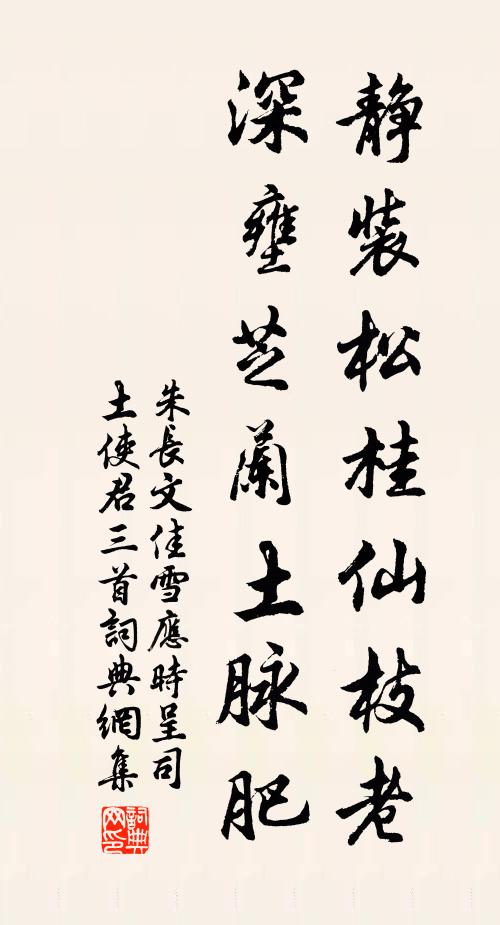 靜裝松桂仙枝老
深壅芝蘭土脉肥
朱長文佳雪應時呈司
土使君三首詞典網集
詞典
网印